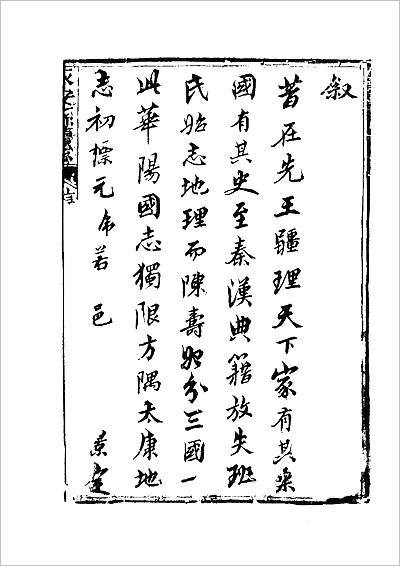 叙
昔在先王疆理天下家有其乘
國有其史至秦漢典籍放失班
氏始志地理而陳壽始分三國一
此華陽國志獨限方隅太康地
志初標元帝若邑 景定